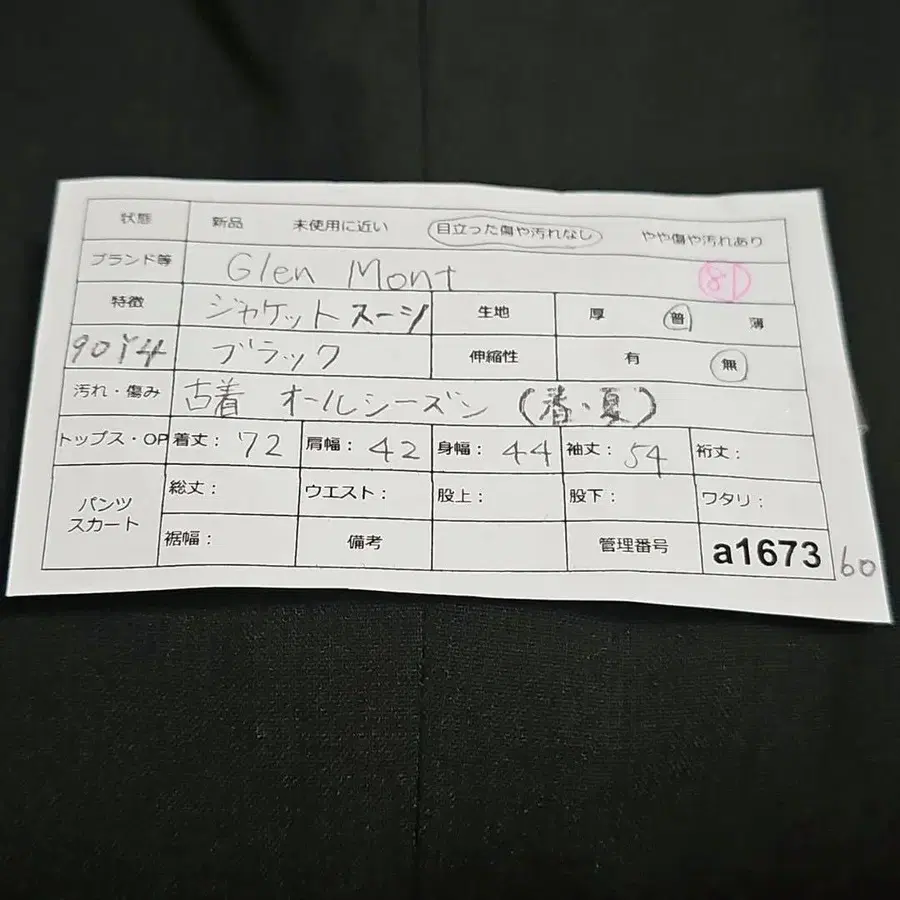 状態 新品 未使用に近い 目立った傷や汚れなし やや傷や汚れあり
ブランド等 Glen Mont 81
特徴 ジャケットスーツ 生地 厚 普 薄
90Y4 ブラック 伸縮性 有 無
汚れ・傷み 古着 オールシーズン (春・夏)
トップス・OP 着丈: 72 肩幅: 42 身幅: 44 袖丈: 54 裄丈:
パンツ
スカート
総丈: ウエスト: 股上: 股下: ワタリ:
裾幅: 備考 管理番号 a1673 60